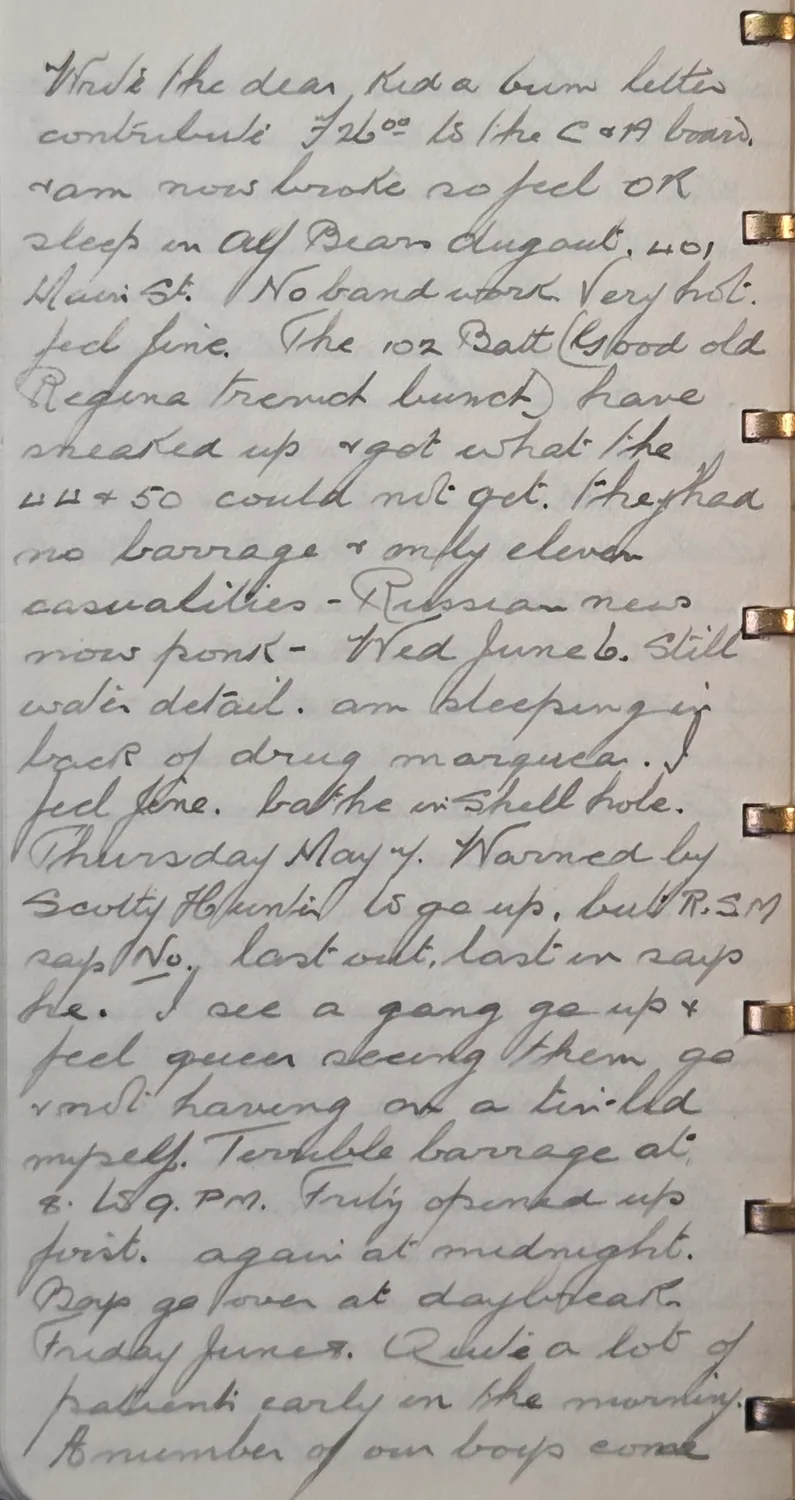 Write the dear Kid a bum letter
contribute F26⁰⁰ to the C & A board.
& am now broke so feel OK
sleep in Alf Bears dugout. 401
Main St. No band work. Very hot.
feel fine. The 102 Batt (Good old
Regina trench bunch) have
sneaked up & got what the
44 & 50 could not get. They had
no barrage & only eleven
casualities - Russian news
now ponk - Wed June 6. Still
water detail. am sleeping in
back of drug marquea. I
feel fine. bathe in Shell hole.
Thursday May 7. Warned by
Scotty Hunter to go up, but R.S.M
says No, last out, last in says
he. I see a gang go up &
feel queer seeing them go
& not having on a tin-lid
myself. Terrible barrage at
8. to 9. PM. Fritz opened up
first. again at midnight.
Boys go over at daybreak.
Friday June 8. Quite a lot of
patients early in the morning.
A number of our boys come